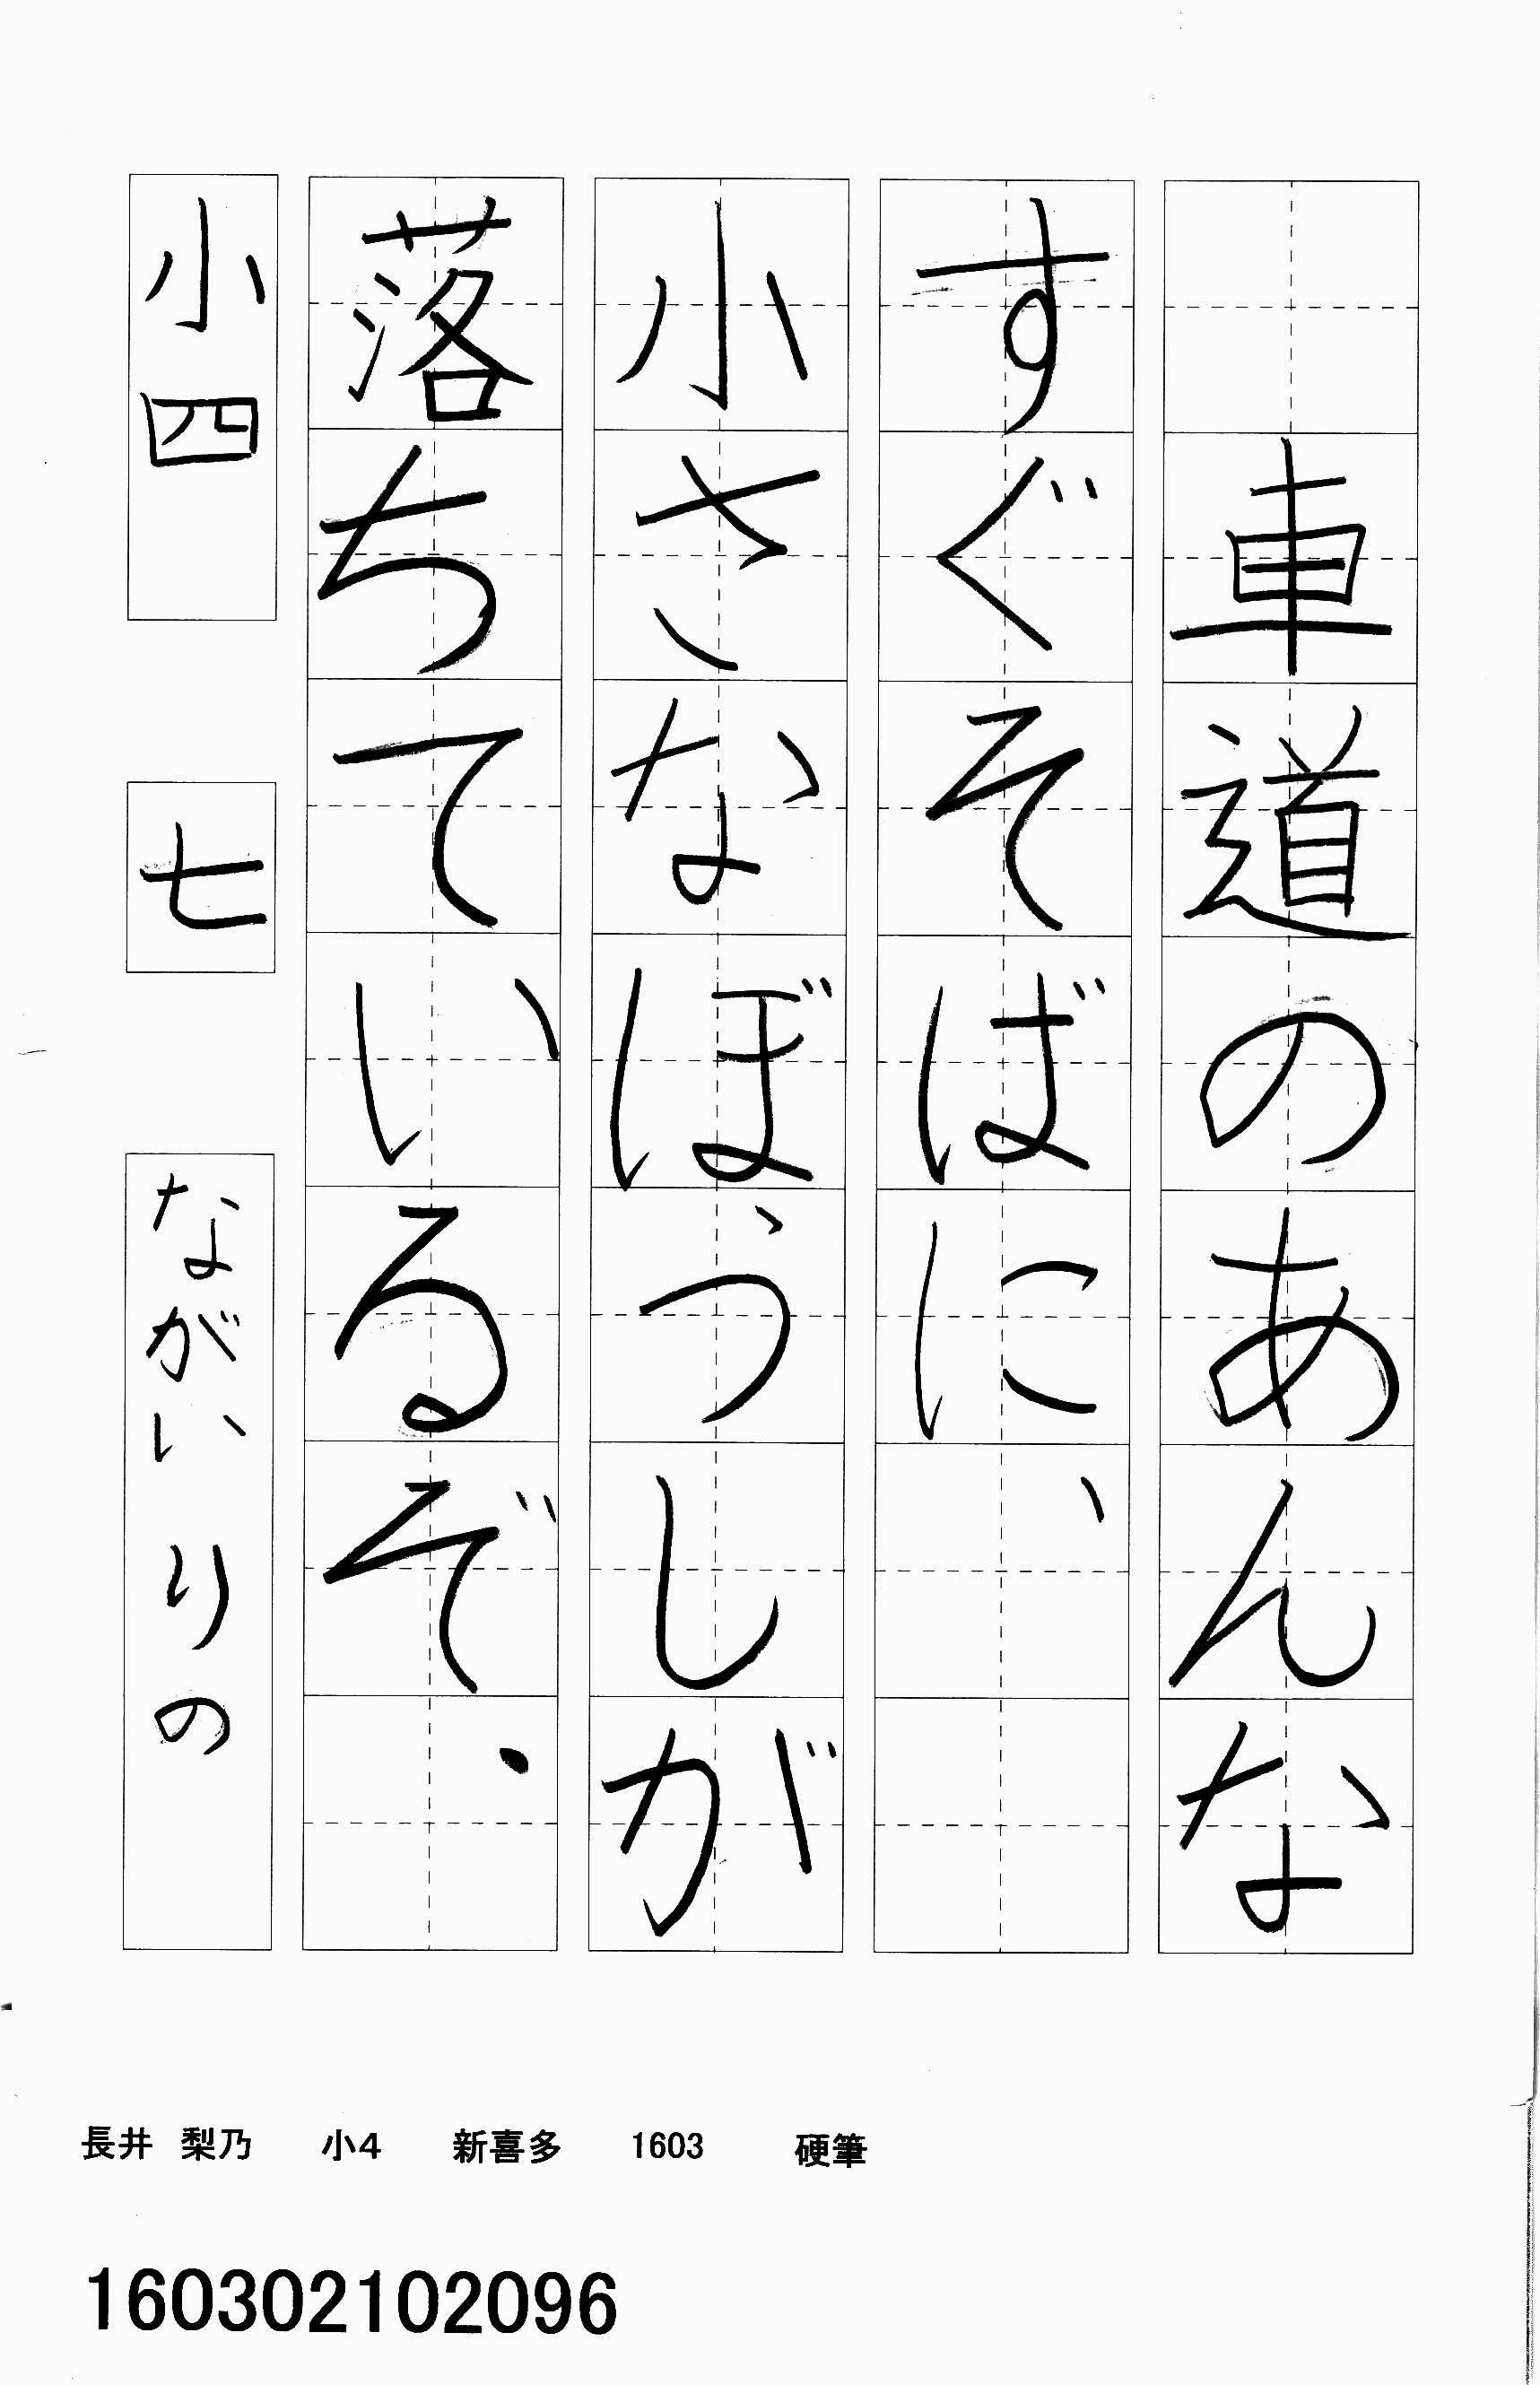 車道のあんな
すぐそばに、
小さなぼうしが
落ちているぞ、
小四 七 ながい りの
長井 梨乃 小4 新喜多 1603 硬筆
160302102096